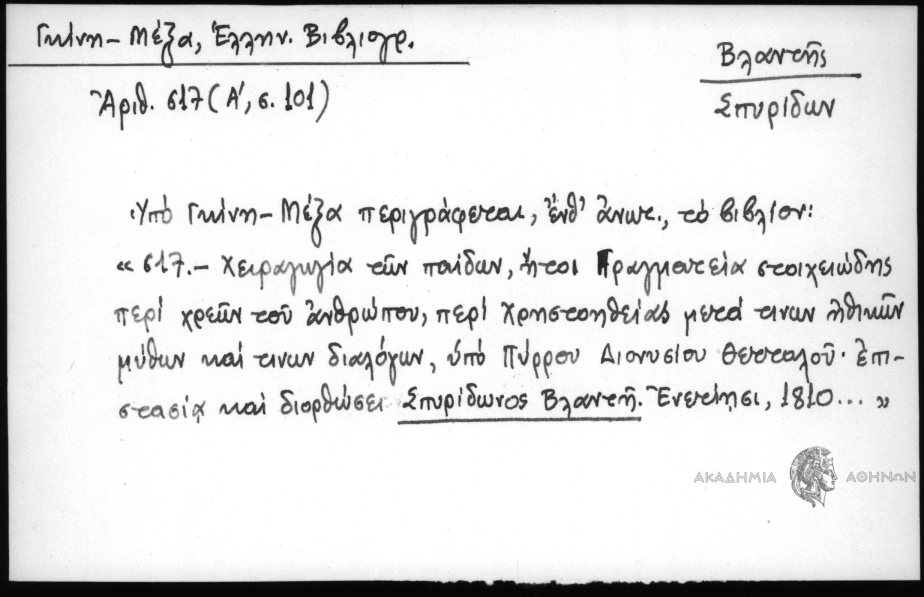 Γκίνη-Μέξα, Ἑλλην. Βιβλιογρ.
Ἀριθ. 617 (Α', σ. 101)
Βλαντῆς
Σπυρίδων
Ὑπό Γκίνη-Μέξα περιγράφεται, ἔνθ' ἄνωτ., τό βιβλίον:
« 617.- Χειραγωγία τῶν παίδων, ἤτοι Πραγματεία στοιχειώδης
περί χρεῶν τοῦ ἀνθρώπου, περί χρηστοηθείας μετά τινων ἠθικῶν
μύθων καί τινων διαλόγων, ὑπό Πύρρου Διονυσίου Θετταλοῦ· ἐπι-
στασίᾳ καί διορθώσει Σπυρίδωνος Βλαντῆ. Ἐνετίησι, 1810... »
ΑΚΑΔΗΜΙΑ ΑΘΗΝΩΝ